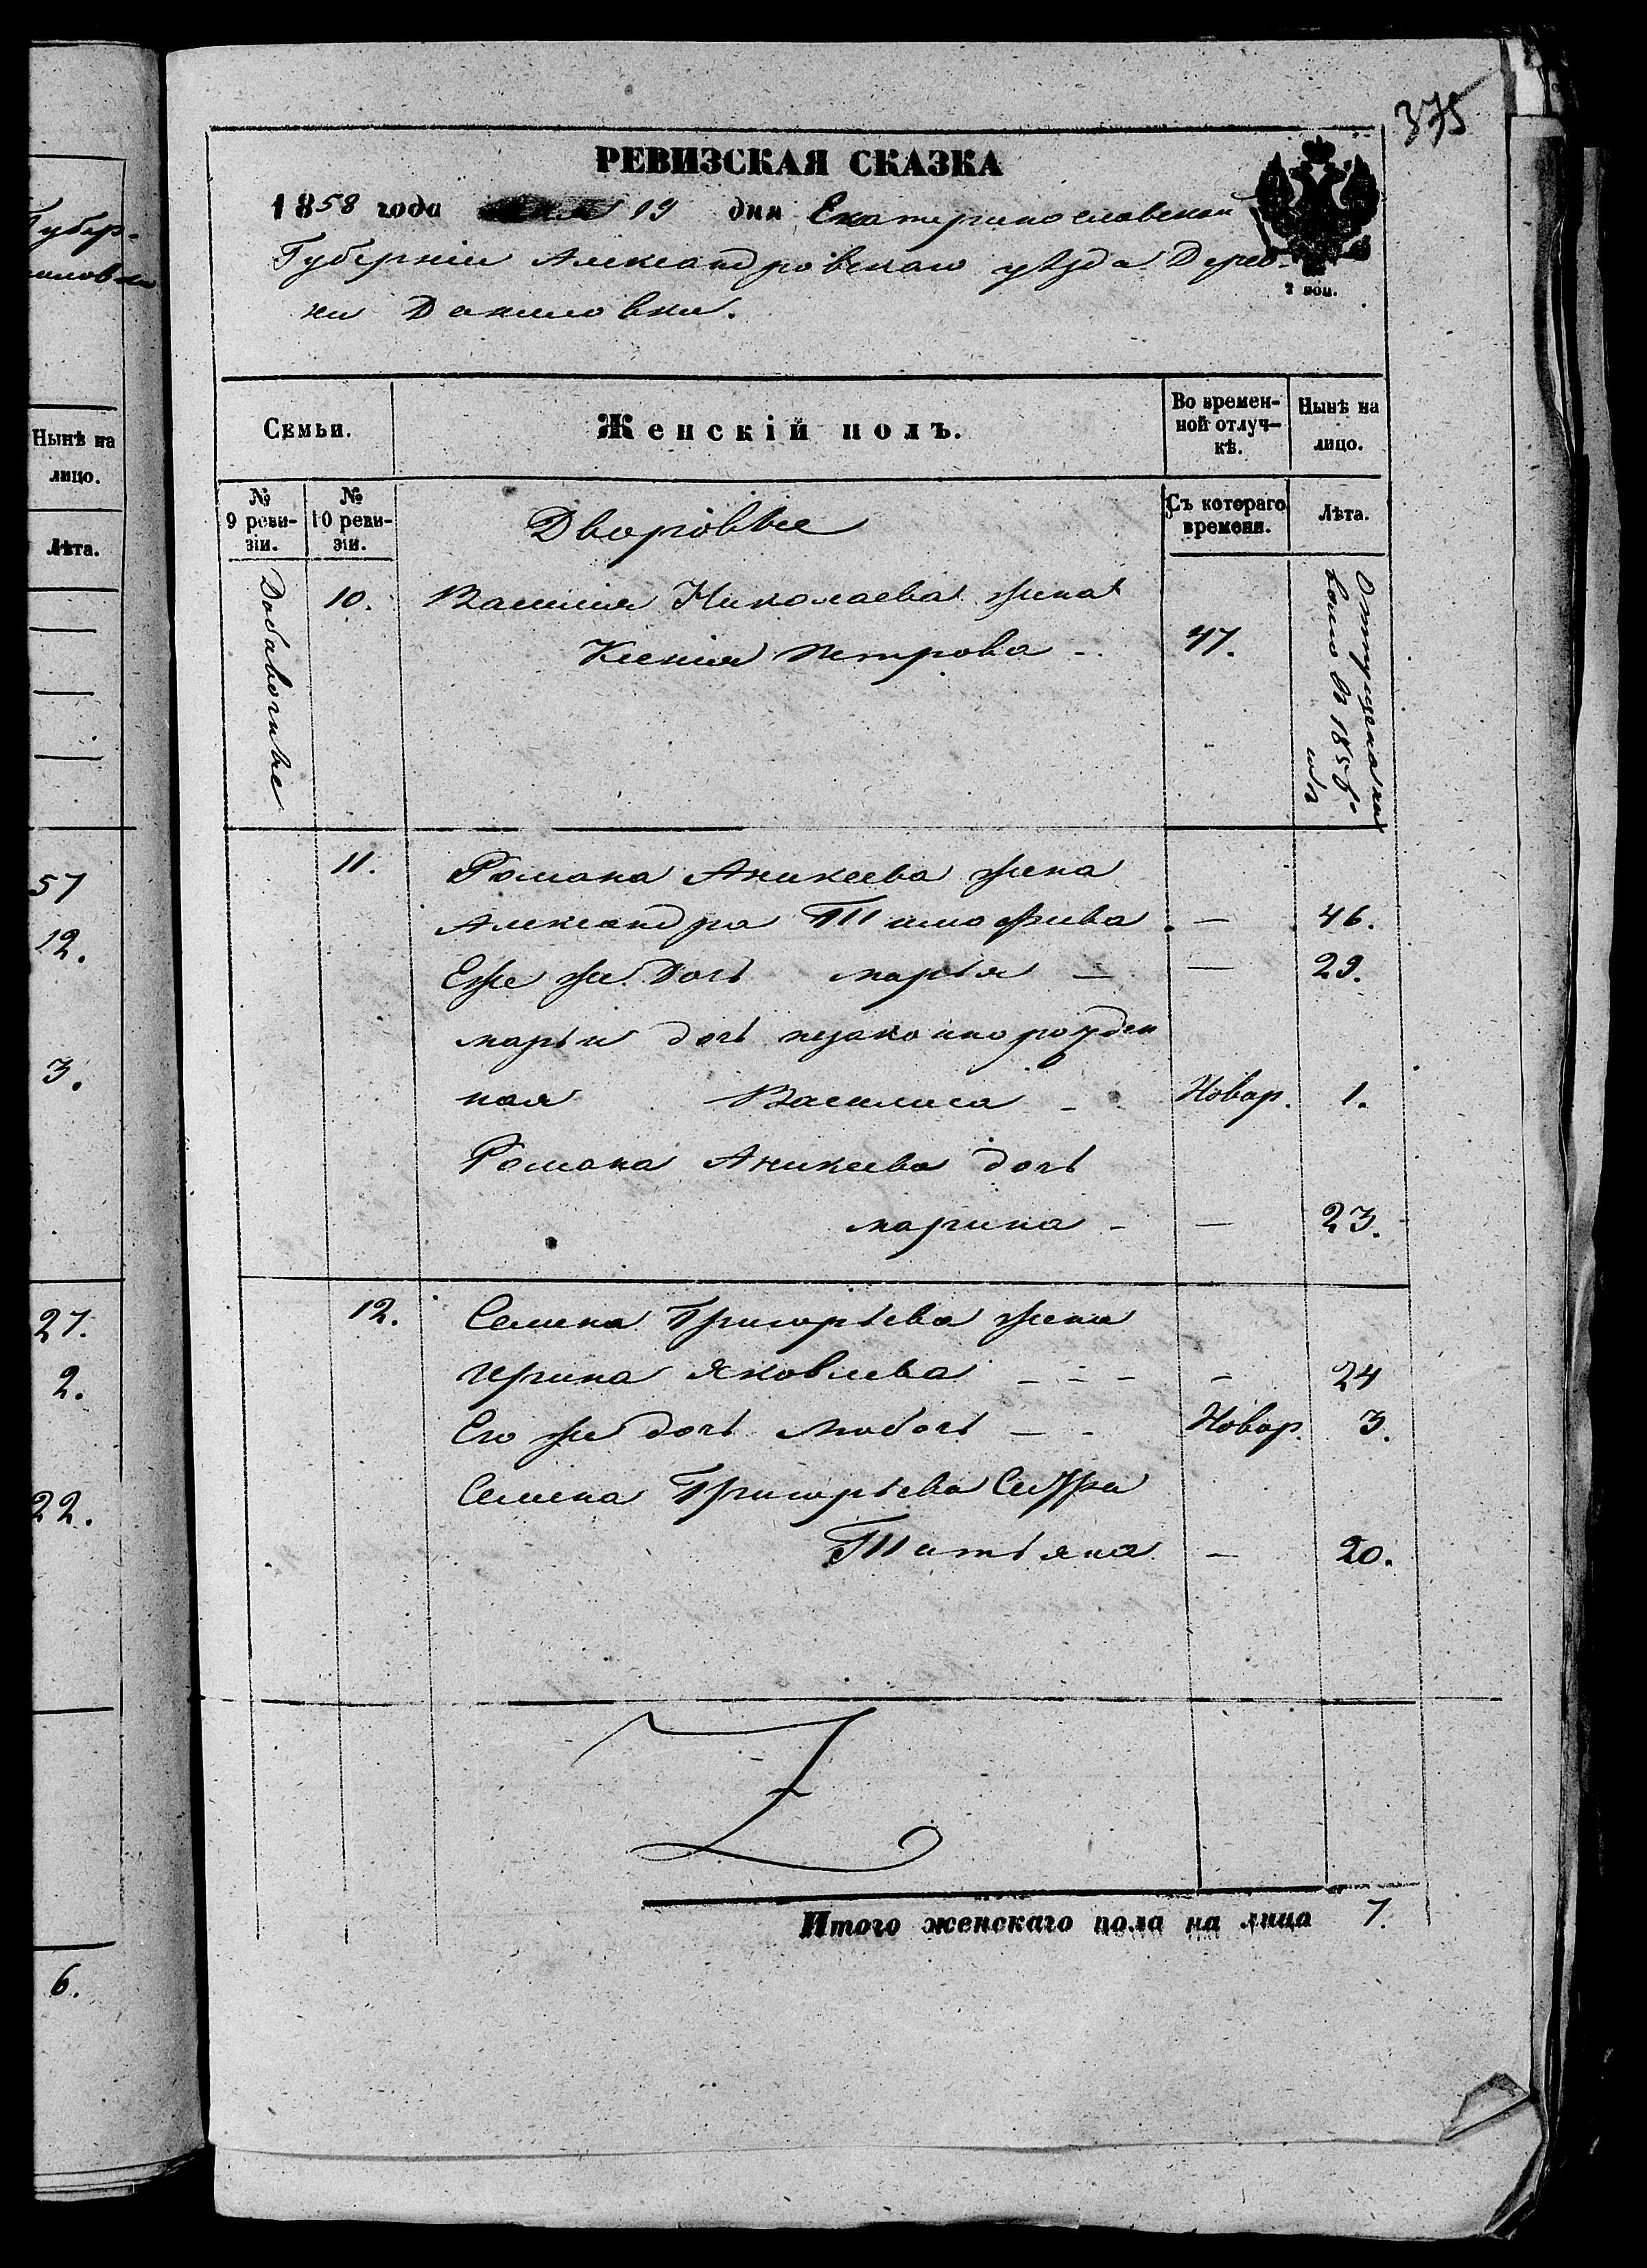 Губер-
иловки
Нынѣ на
лицо.
Лѣта.
57
12.
3.
27.
2.
22.
6.
375
РЕВИЗСКАЯ СКАЗКА
1858 года 19 дня Екатеринославской
Губерніи Александровскаго уѣзда Дерев-
ни Даниловки.
7 коп.
Семьи.
Женскій полъ.
Во времен-
ной отлуч-
кѣ.
Нынѣ на
лицо.
№
9 реви-
зіи.
№
10 реви-
зіи.
Дворовые
Съ котораго
времени.
Лѣта.
Добавочные
10. Василия Николаева жена
Ксения Петрова - 47.
Отпущена на
волю въ 1856
11. Романа Аникеева жена
Александра Тимофеива — 46.
Еже же дочь марья — — 29.
марьи дочь незаконорожден
ная Василиса - Новор. 1.
Романа Аникеева дочь
марина - — 23.
12. Семена Григорьева жена
Ирина Яковлева - - - - 24
Его же дочь Любовь — - Новор. 3.
Семена Григорьева Сестра
Татьяна — 20.
Итого женскаго пола на лица 7.